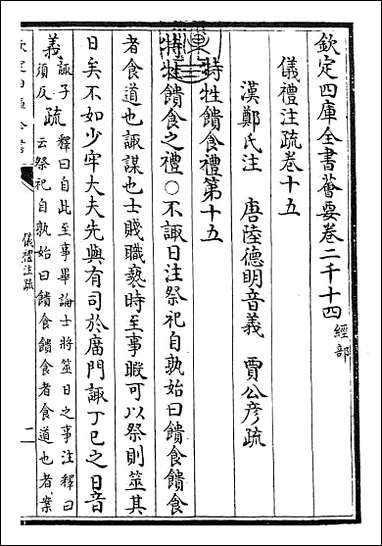 欽定四庫全書薈要卷二千十四 經部
儀禮注疏卷十五
漢鄭氏注 唐陸德明音義 賈公彥疏
特牲饋食禮第十五
特牲饋食之禮○不諏日注祭祀自孰始曰饋食饋食
者食道也諏謀也士賤職褻時至事暇可以祭則筮其
日矣不如少牢大夫先與有司於庿門諏丁巳之日音
義 諏子須反 疏 釋曰自此至事畢論士將筮日之事注釋曰云祭祀自孰始曰饋食饋食者食道也者案
欽定四庫全書
儀禮注疏